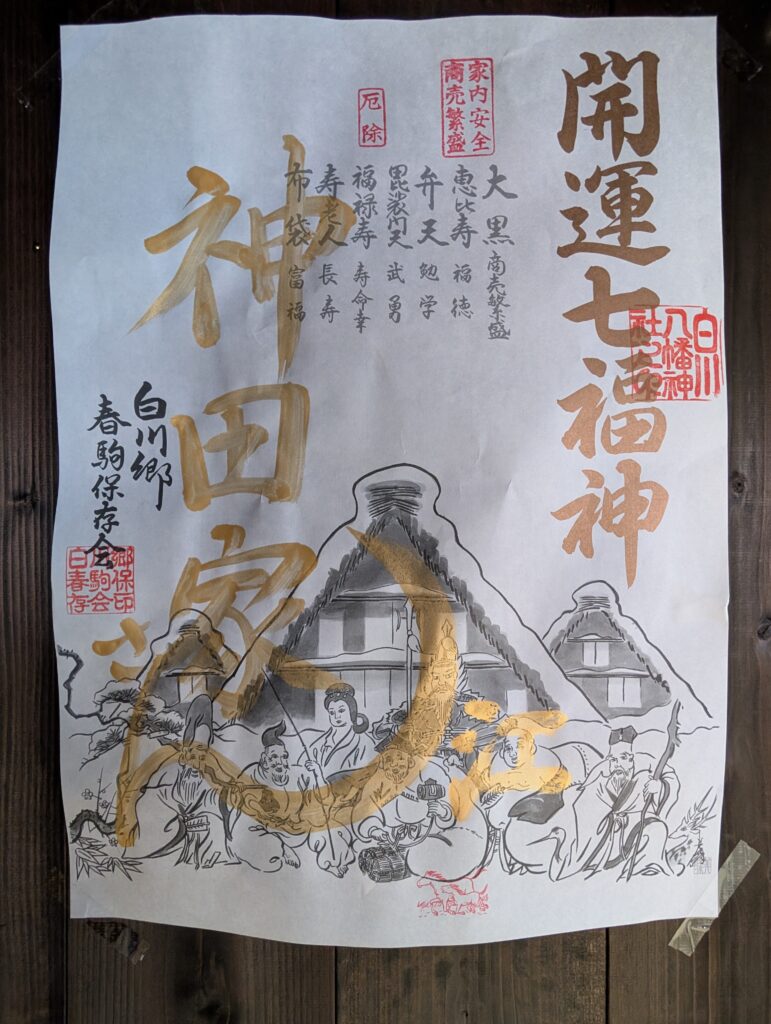 開運七福神
白川
八幡神
社之印
家内安全
商売繁盛
大黒 商売繁盛
恵比寿 福徳
弁天 勉学
厄除
毘裟門天 武勇
福禄寿 寿命幸
寿老人 長寿
布袋 富福
神田家さん江
白川郷
春駒保存会